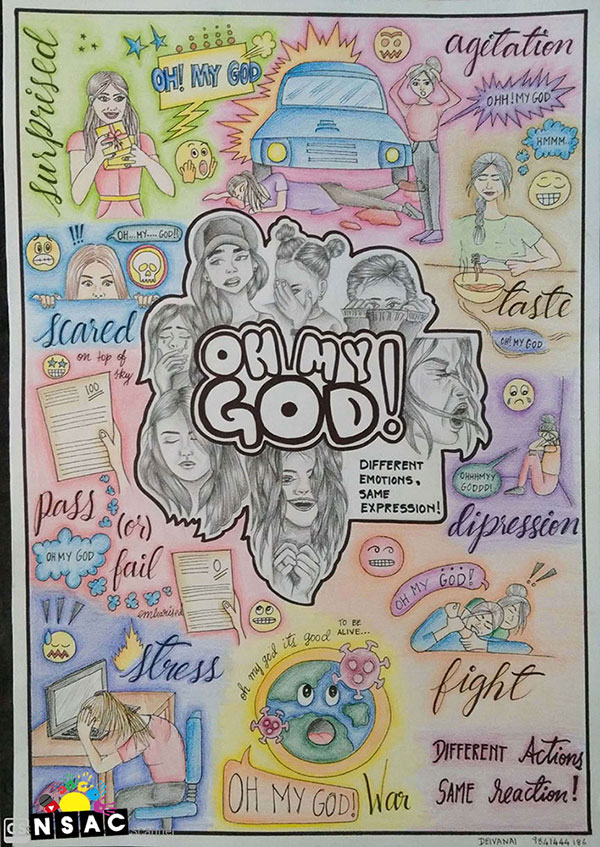 surprised
OH! MY GOD
agitation
OHH! MY GOD
HMMM..
!!!
OH...MY....GOD!!
scared
taste
OH! MY GOD
on top of
sky
OH MY
GOD!
DIFFERENT
EMOTIONS,
SAME
EXPRESSION!
100
pass
(or)
fail
OH MY GOD
0
embarised
OHHHMYY
GODDD!
dipression
OH MY GOD!
!!
fight
stress
oh my god its good
TO BE
ALIVE...
OH MY GOD!
War
DIFFERENT Actions
SAME reaction!
NSAC
scanner
DEIVANAI 9841444186